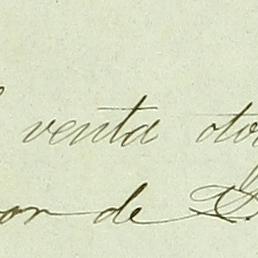 venta oto
or de